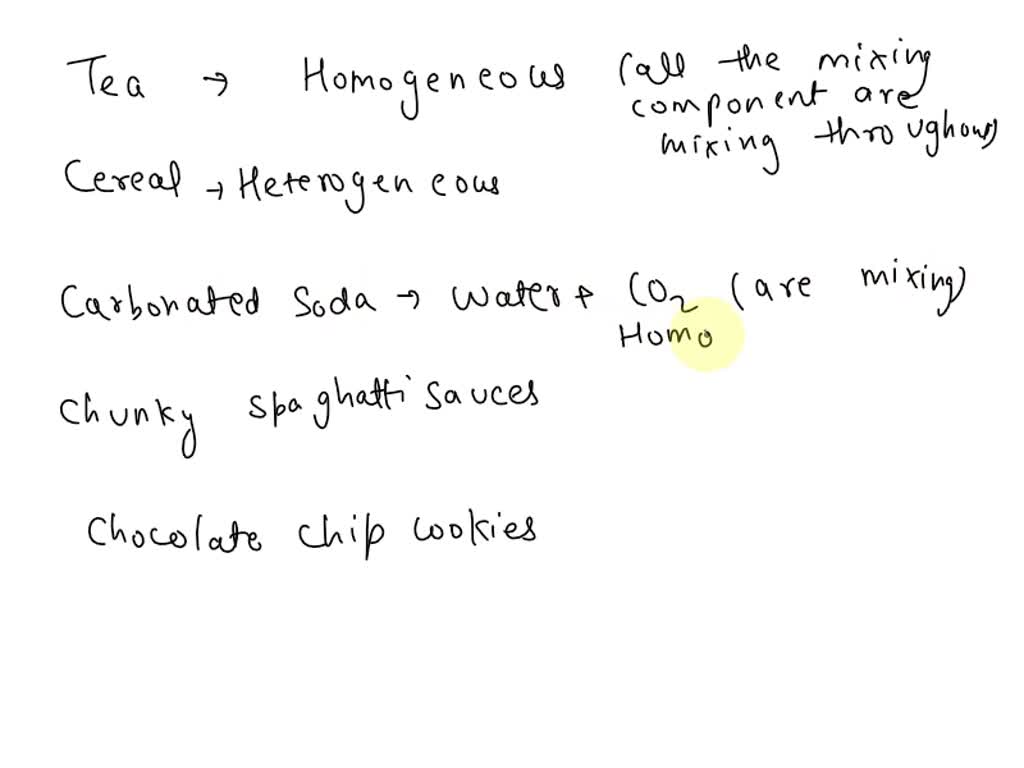 Tea → Homogeneous (all the mixing
component are
mixing throughout)
Cereal → Heterogeneous
Carbonated Soda → Water + CO2 (are mixing)
Homo
Chunky Spaghatti Sauces
Chocolate Chip Cookies